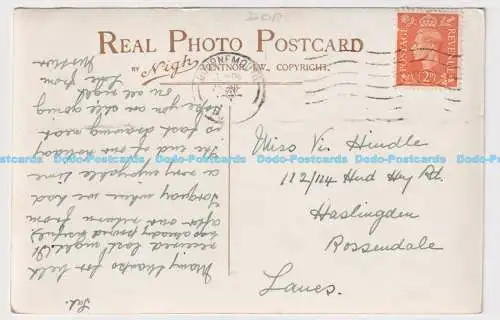 REAL PHOTO POSTCARD
BY Nigh VENTNOR I.W. COPYRIGHT.
BOURNEMOUTH
POSTAGE REVENUE
2D
Sat.
Many thanks for belt
received last night. (It
has already proved useful)
after our return from
Torquay where we had
a very enjoyable time
The end of our holiday
is fast drawing near
Hope you are all going
on all right
from
Miss Vi. Hindle
112/114 Hud Hey Rd.
Haslingden
Rossendale
Lancs.
Dodo-Postcards Dodo-Postcards Dodo-Postcards Dodo-Postcards Dodo-Postcards